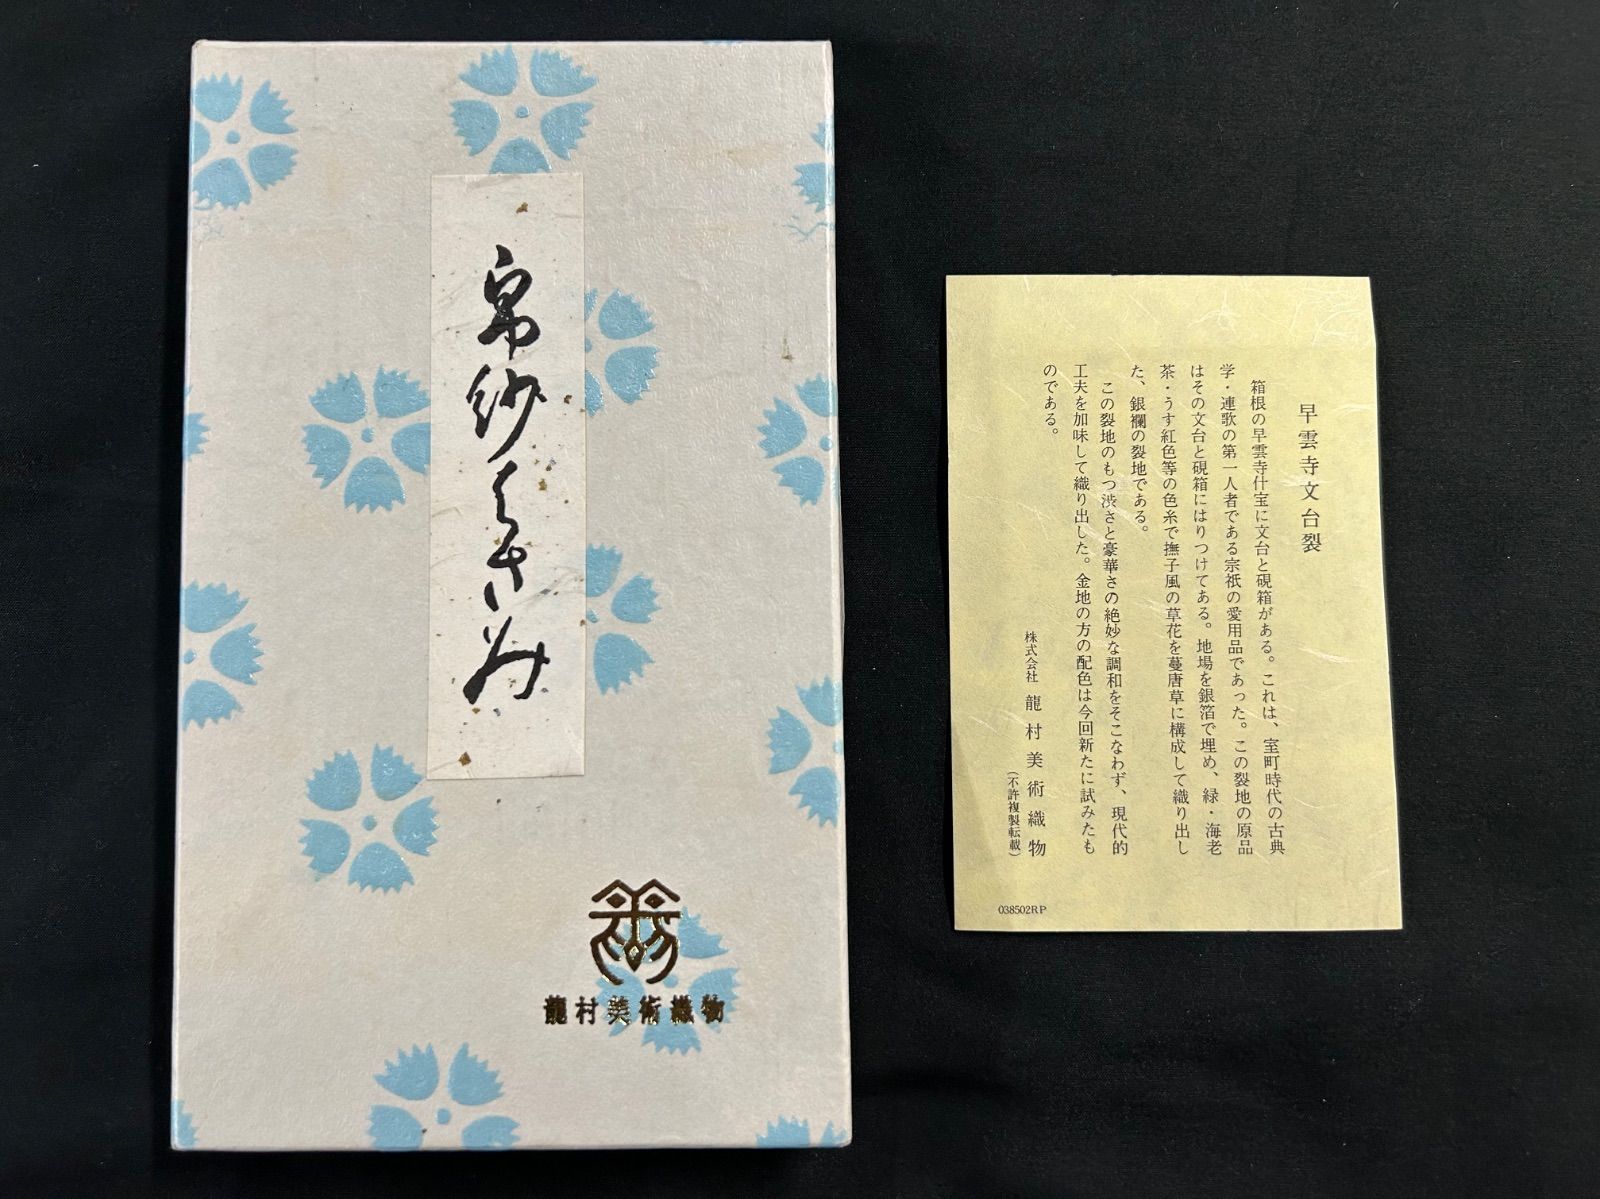 帛紗はさみ
龍村美術織物
早雲寺文台裂
箱根の早雲寺什宝に文台と硯箱がある。これは、室町時代の古典
学・連歌の第一人者である宗祇の愛用品であった。この裂地の原品
はその文台と硯箱にはりつけてある。地場を銀箔で埋め、緑・海老
茶・うす紅色等の色糸で撫子風の草花を蔓唐草に構成して織り出し
た、銀襴の裂地である。
この裂地のもつ渋さと豪華さの絶妙な調和をそこなわず、現代的
工夫を加味して織り出した。金地の方の配色は今回新たに試みたも
のである。
株式会社 龍村美術織物
(不許複製転載)
038502RP